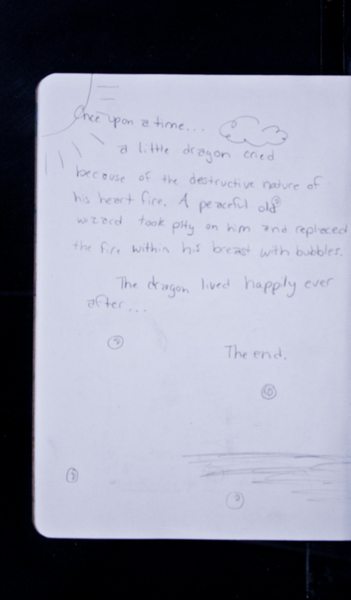 Once upon a time...
a little dragon cried
because of the destructive nature of
his heart fire. A peaceful old
wizard took pity on him and replaced
the fire within his breast with bubbles.
The dragon lived happily ever
after...
The end.